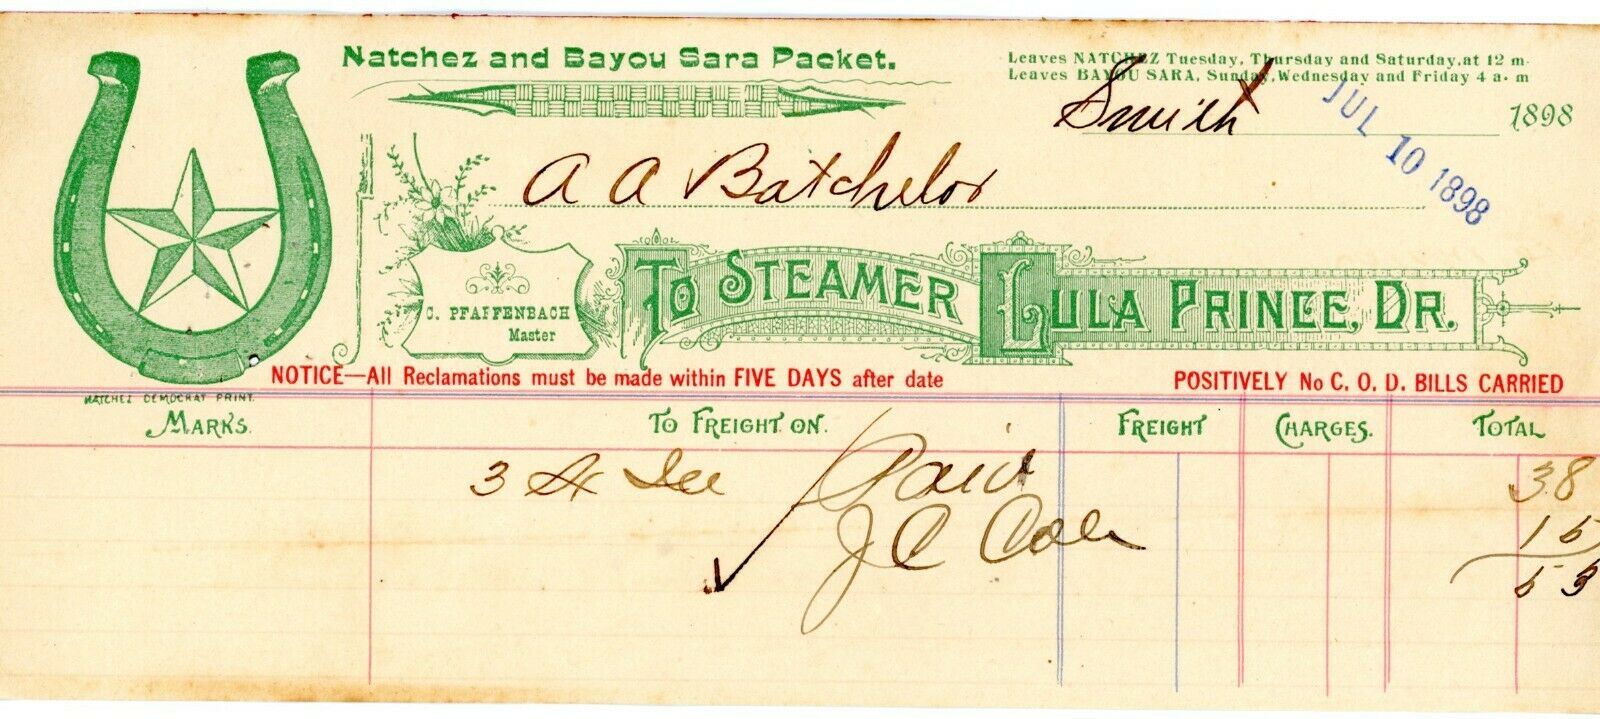 Natchez and Bayou Sara Packet.
Leaves NATCHEZ Tuesday, Thursday and Saturday, at 12 m.
Leaves BAYOU SARA, Sunday, Wednesday and Friday 4 a. m
Smith
JUL 10 1898
1898
A A Batchelor
C. PFAFFENBACH
Master
TO STEAMER LULA PRINCE, DR.
NOTICE—All Reclamations must be made within FIVE DAYS after date
POSITIVELY No C. O. D. BILLS CARRIED
NATCHEZ DEMOCRAT PRINT.
MARKS. TO FREIGHT ON. FREIGHT CHARGES. TOTAL
3 Ice Paid 38
J C 15
53